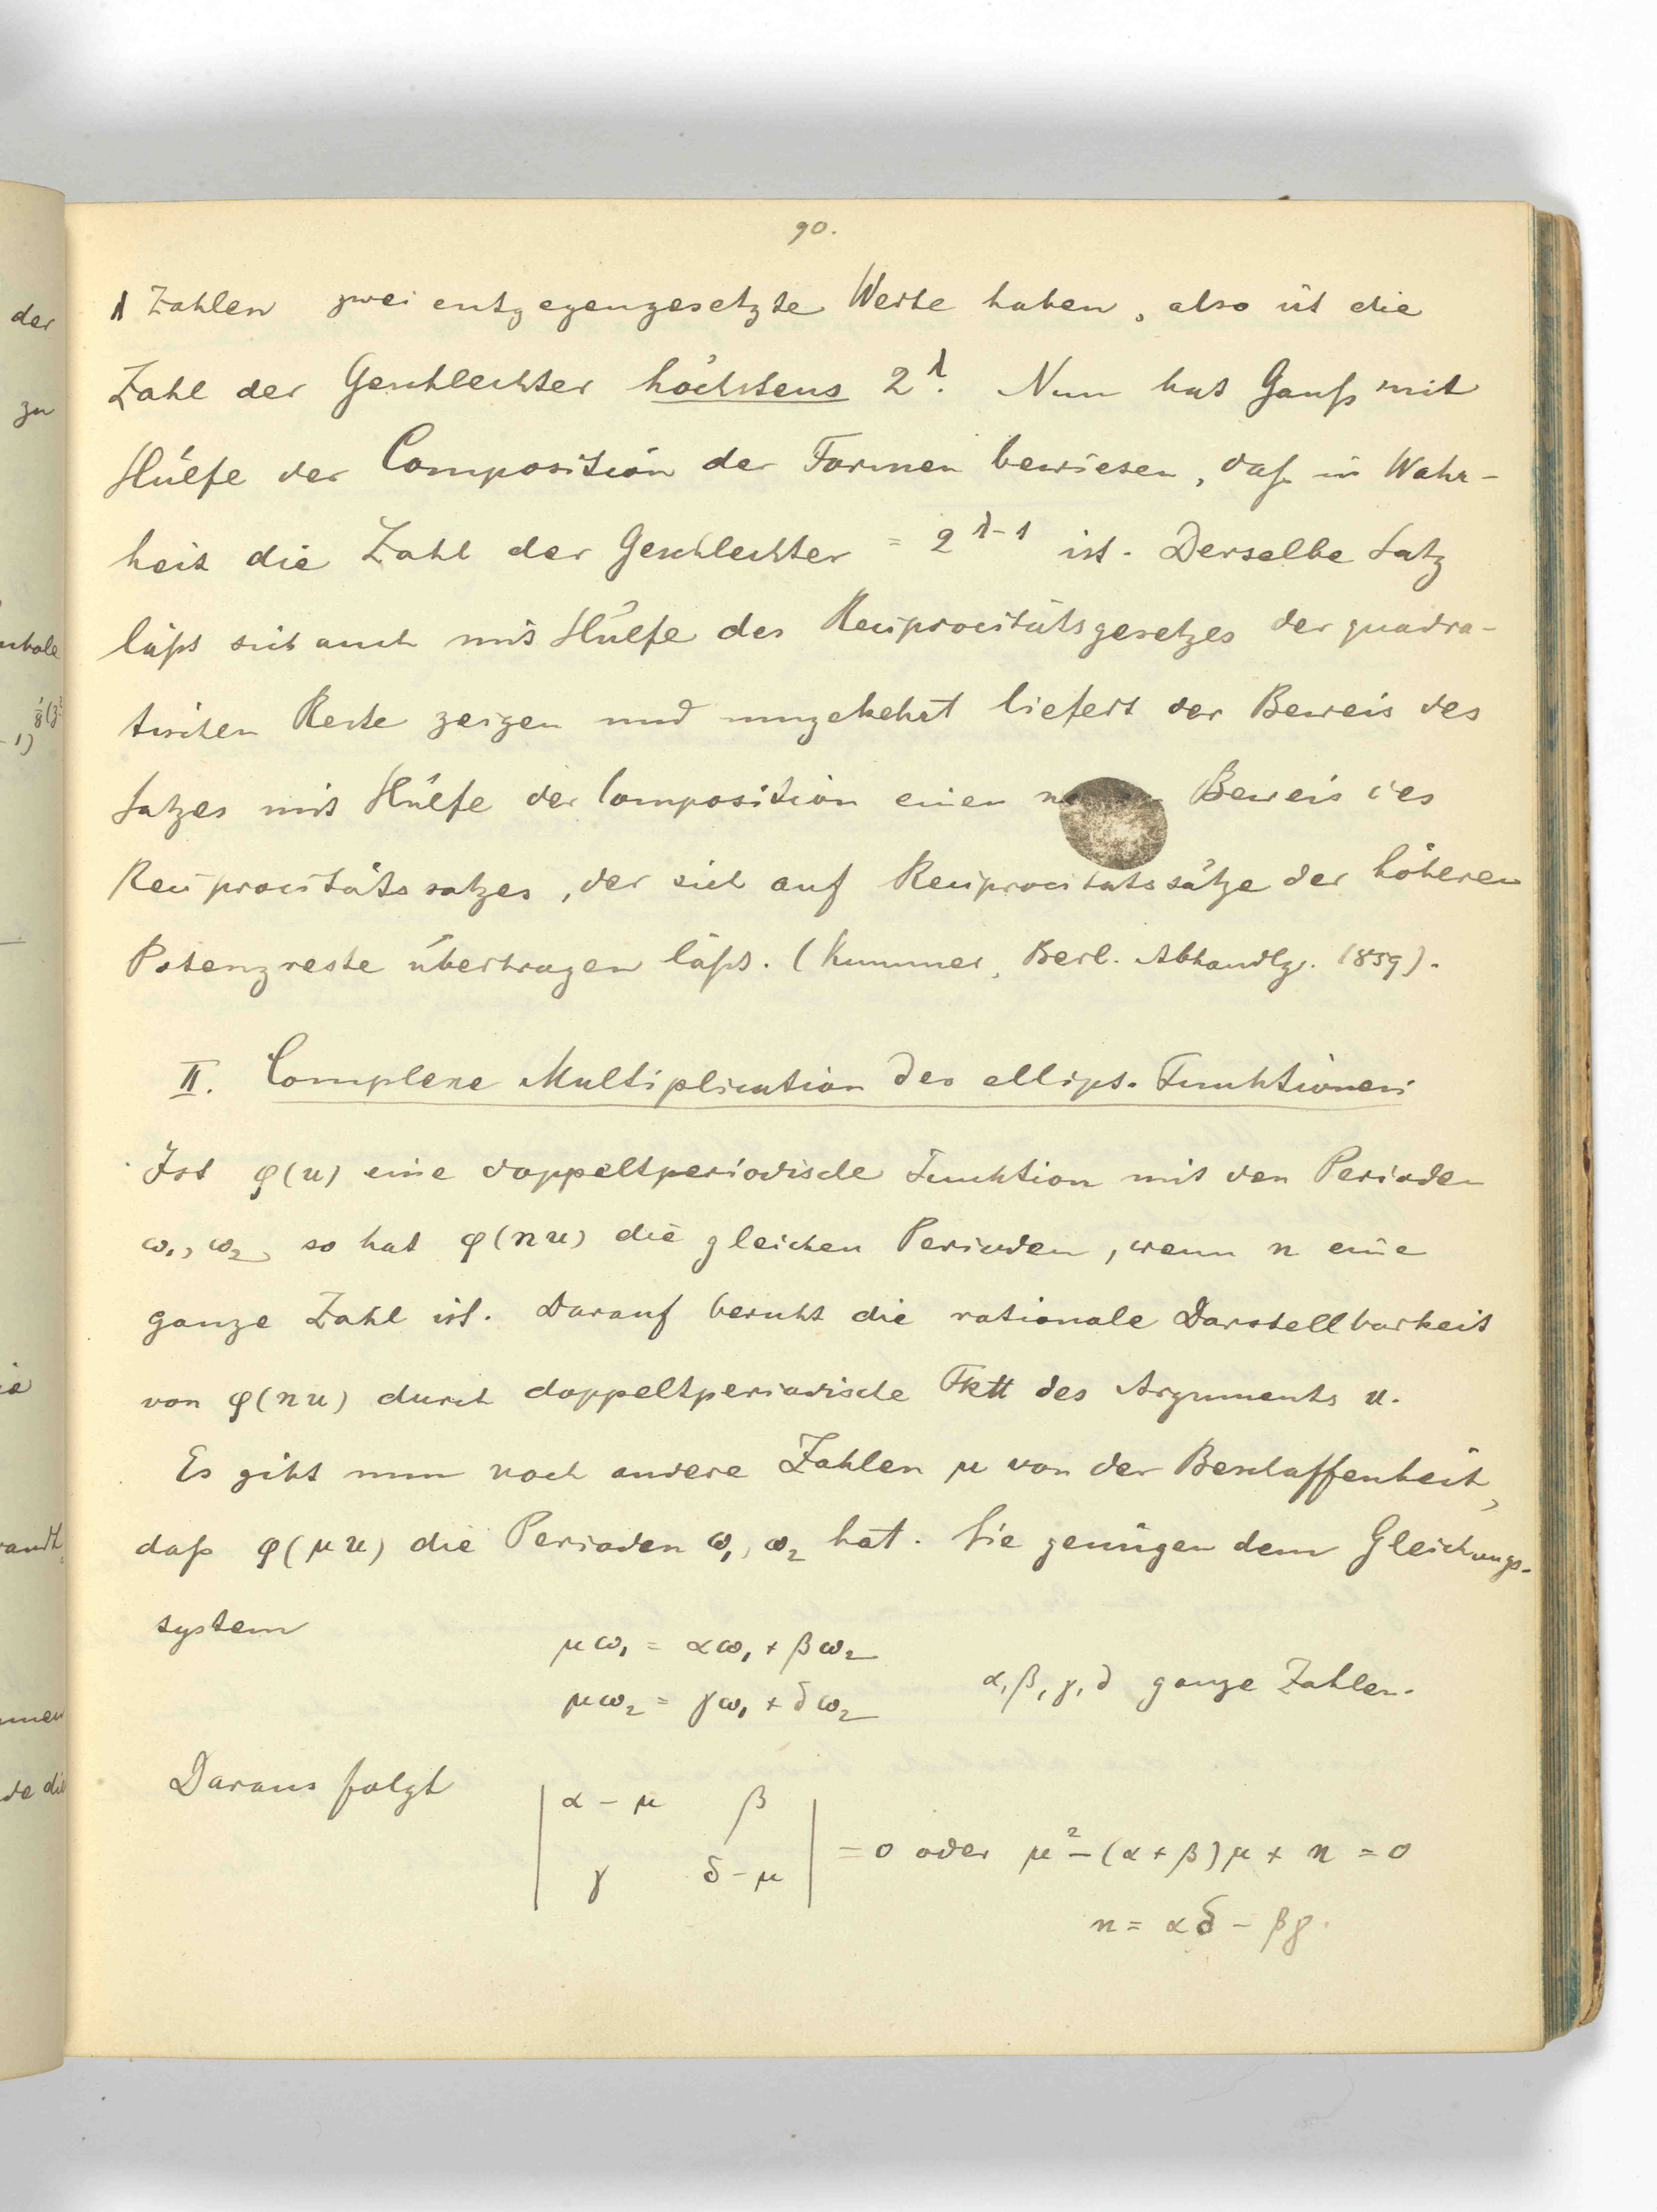 90.
λ Zahlen zwei entgegengesetzte Werte haben, also ist die
Zahl der Geschlechter höchstens 2^λ. Nun hat Gauß mit
Hülfe der Composition der Formen bewiesen, daß in Wahr-
heit die Zahl der Geschlechter = 2^{λ-1} ist. Derselbe Satz
läßt sich auch mit Hülfe des Reciprocitätsgesetzes der quadra-
tischen Reste zeigen und umgekehrt liefert der Beweis des
Satzes mit Hülfe der Composition einen Beweis des
Reciprocitätssatzes, der sich auf Reciprocitätssätze der höheren
Potenzreste übertragen läßt. (Kummer, Berl. Abhandlg. 1859).
II. Complexe Multiplication der ellipt. Funktionen.
Ist φ(u) eine doppeltperiodische Funktion mit den Perioden
ω₁, ω₂, so hat φ(nu) die gleichen Perioden, wenn n eine
ganze Zahl ist. Darauf beruht die rationale Darstellbarkeit
von φ(nu) durch doppeltperiodische Fktt des Arguments u.
Es gibt nun noch andere Zahlen μ von der Beschaffenheit,
daß φ(μu) die Perioden ω₁, ω₂ hat. Sie genügen dem Gleichungs-
system
μω₁ = αω₁ + βω₂
μω₂ = γω₁ + δω₂
α, β, γ, δ ganze Zahlen.
Daraus folgt
| α - μ β |
| γ δ - μ | = 0 oder μ² - (α + β)μ + n = 0
n = αδ - βγ.
der
zu